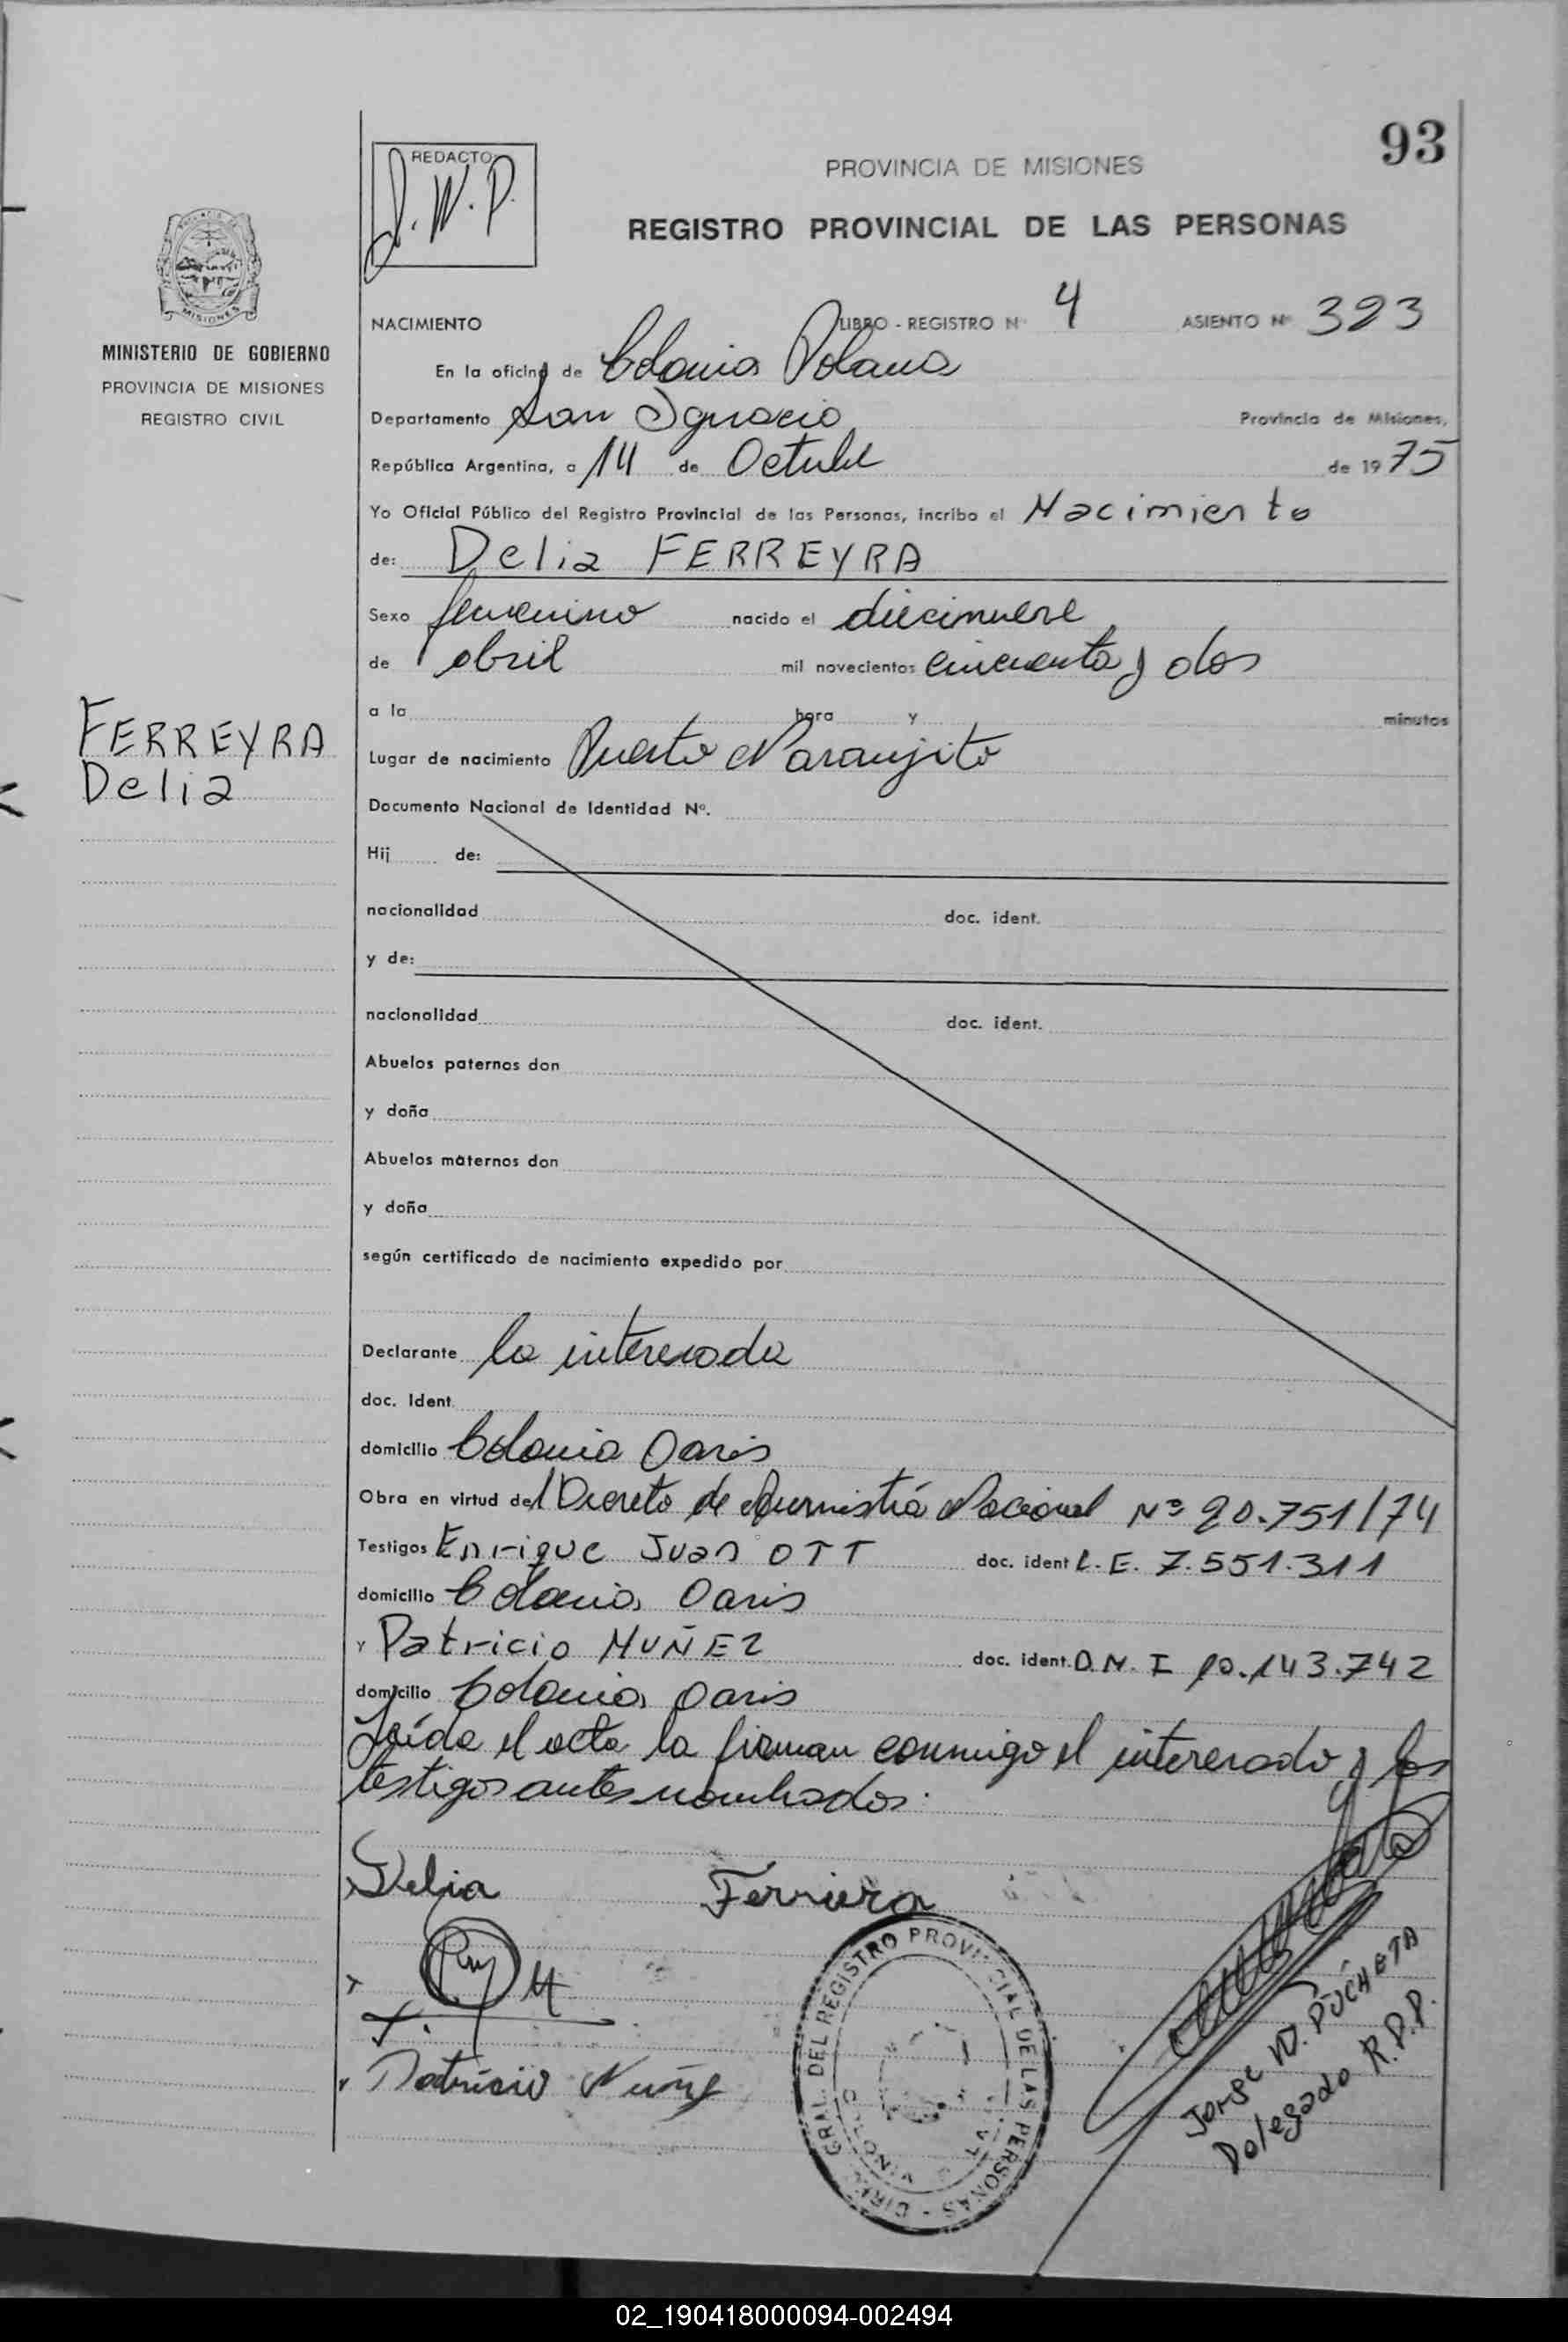 93
REDACTO:
J.W.P.
PROVINCIA DE MISIONES
REGISTRO PROVINCIAL DE LAS PERSONAS
MISIONES
MINISTERIO DE GOBIERNO
PROVINCIA DE MISIONES
REGISTRO CIVIL
NACIMIENTO LIBRO - REGISTRO Nº 4 ASIENTO Nº 393
En la oficina de Colonia Polana
Departamento San Ignacio Provincia de Misiones,
República Argentina, a 14 de Octubre de 1975
Yo Oficial Público del Registro Provincial de las Personas, incribo el Nacimiento
de: Delia FERREYRA
Sexo femenino nacido el diecinueve
de abril mil novecientos cincuenta y dos
a la hora y minutos
FERREYRA
Delia
Lugar de nacimiento Puerto Naranjito
Documento Nacional de Identidad Nº.
Hij de:
nacionalidad doc. ident.
y de:
nacionalidad doc. ident.
Abuelos paternos don
y doña
Abuelos maternos don
y doña
según certificado de nacimiento expedido por
Declarante la interesada
doc. Ident.
domicilio Colonia Oasis
Obra en virtud del Decreto de Nacional Nº 20.751/74
Testigos Enrique Juan OTT doc. ident L.E. 7.551.311
domicilio Colonia Oasis
y Patricio NUÑEZ doc. ident. D.N.I 10.143.742
domicilio Colonia Oasis
Leída el acta la firman conmigo el interesado y los
testigos antes nombrados.
Delia Ferriera
Patricio Nuñez
GRAL. DEL REGISTRO PROVINCIAL DE LAS PERSONAS - DIREC.
Jorge W. PUCHETA
Delegado R.P.P.
02_190418000094-002494